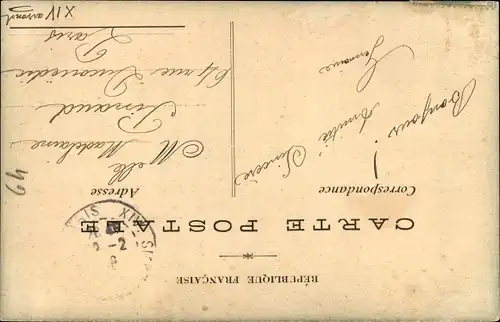 RÉPUBLIQUE FRANÇAISE
CARTE POSTALE
Correspondance
Adresse
Bonjour !
Amitié Sincère
Germaine
Melle
Madeleine
Pinaud
64 rue Ducouédic
Paris
XIV arrond
64